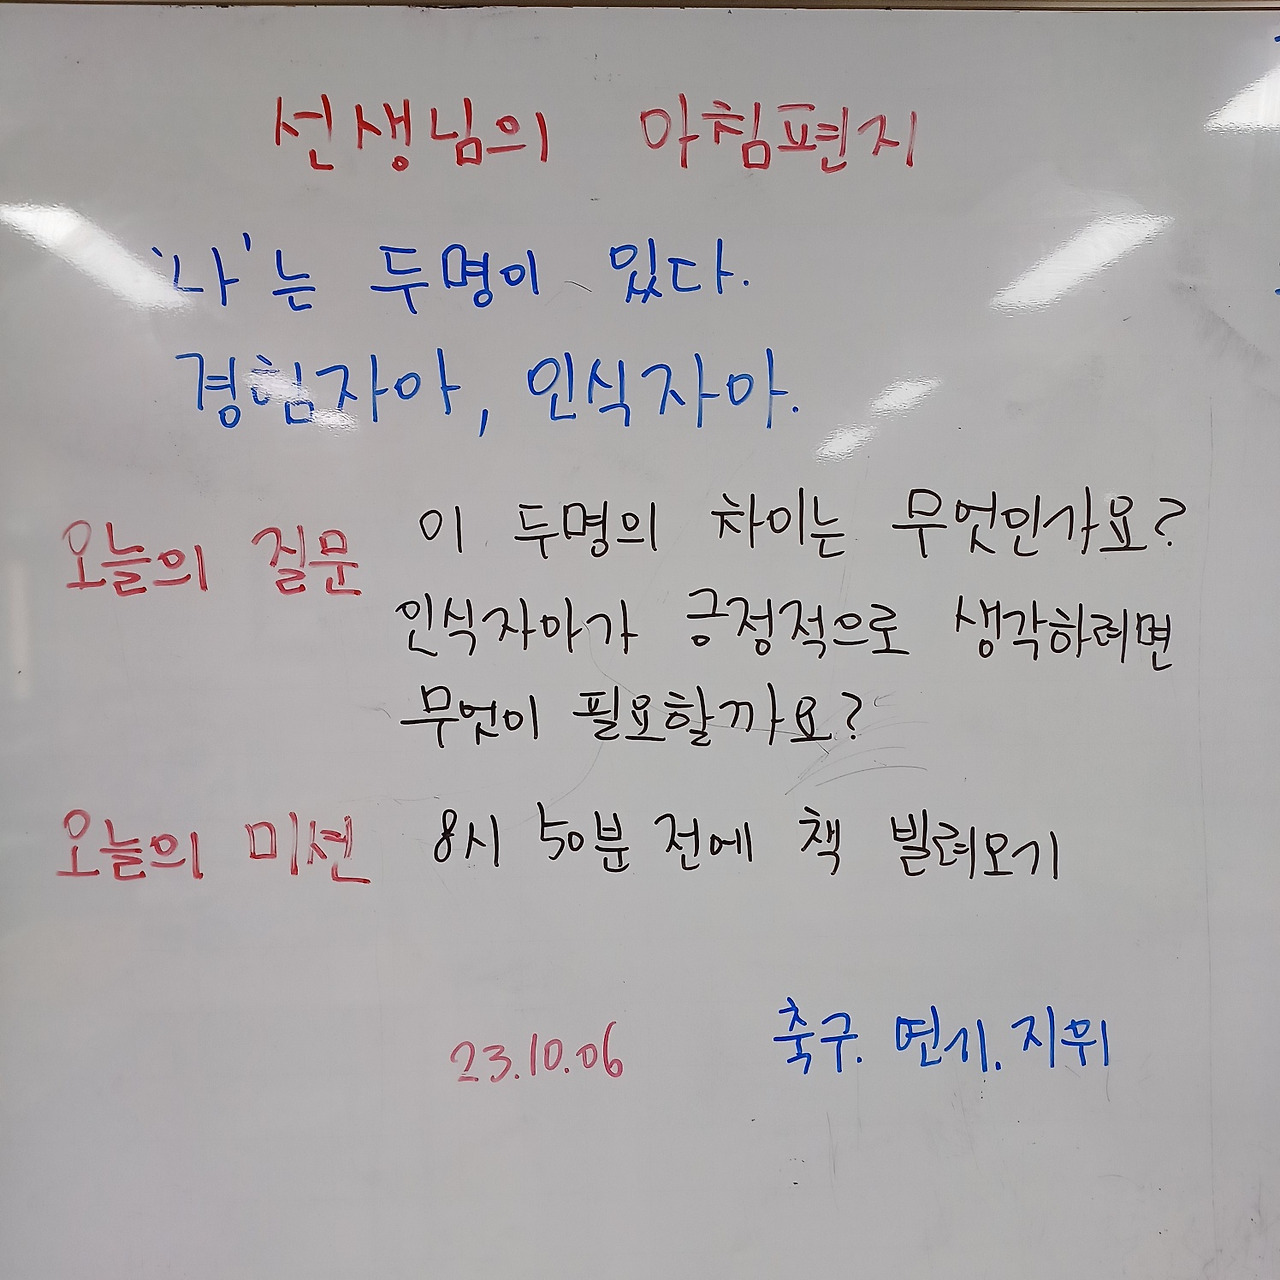 선생님의 아침편지
'나'는 두명이 있다.
경험자아, 인식자아.
오늘의 질문 이 두명의 차이는 무엇인가요?
인식자아가 긍정적으로 생각하려면
무엇이 필요할까요?
오늘의 미션 8시 50분 전에 책 빌려오기
23.10.06 축구. 연기. 지휘